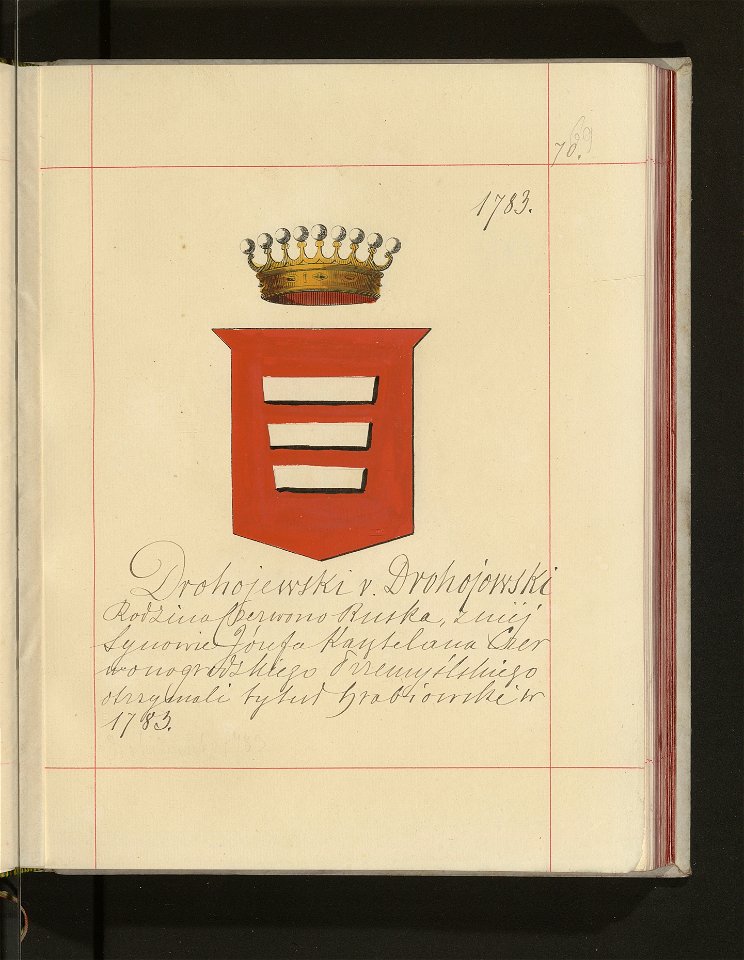 69
70.
1783.
Drohojewski v. Drohojowski
Rodzina Czerwono Ruska, z niéj
Synowie Józefa Kasztelana Czer
wonogrodzkiego Przemyślskiego
otrzymali tytuł Hrabiowski w
1783.